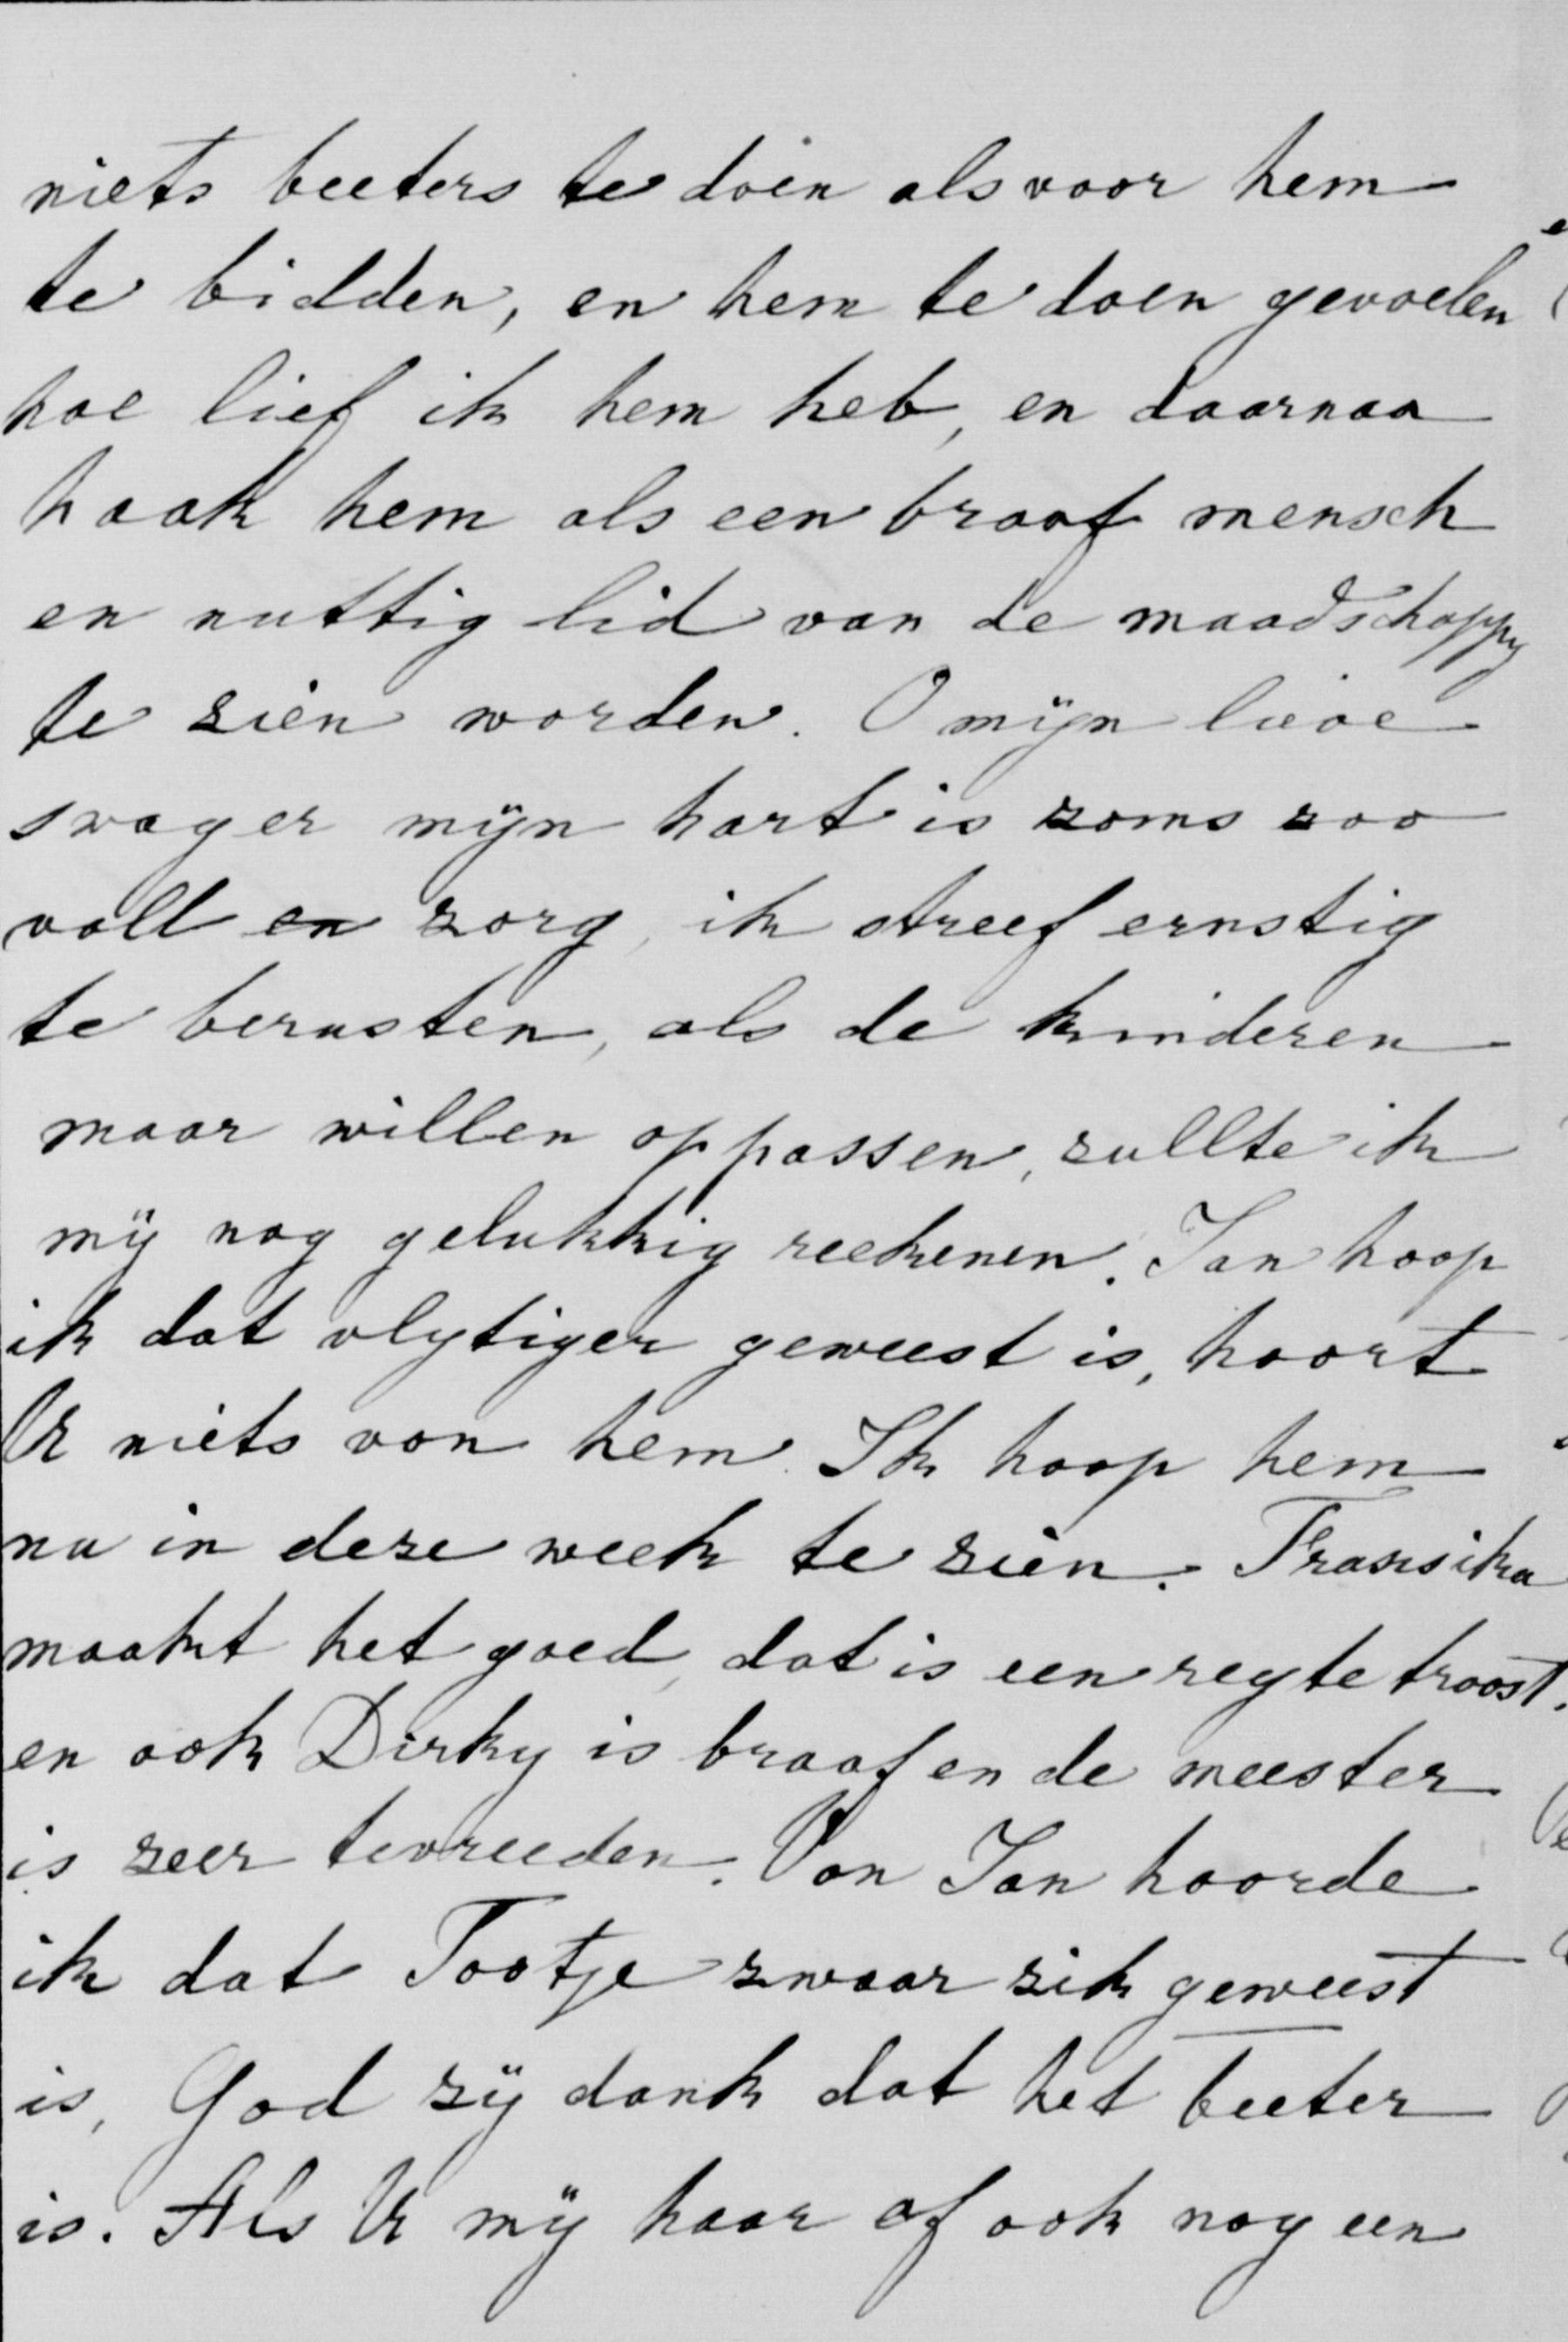 niets beeters te doen als voor hem
te bidden, en hem te doen gevoelen
hoe lief ik hem heb, en daarnaa
haak hem als een braaf mensch
en nuttig lid van de maadschappy
te zien worden. O mijn lieve
svager mijn hart is zoms zoo
voll en zorg, ik streef ernstig
te berusten, als de kinderen
maar willen oppassen, zullte ik
mij nog gelukkig reekenen. Jan hoop
ik dat vlytiger geweest is, hoort
U niets van hem. Ik hoop hem
nu in deze week te zien. Fransiska
maakt het goed, dat is een regte troost,
en ook Dirky is braaf en de meester
is zeer tevreeden. Van Jan hoorde
ik dat Tootje zwaar zik geweest
is, God zij dank dat het beeter
is. Als U mij haar of ook nog een